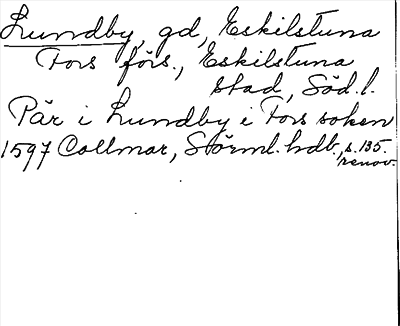 Lundby, gd, Eskilstuna
Fors förs., Eskilstuna
stad, Söd.l.
Pär i Lundby i Fors soken
1597 Collmar, Störml. hdb., s. 135.
renov.